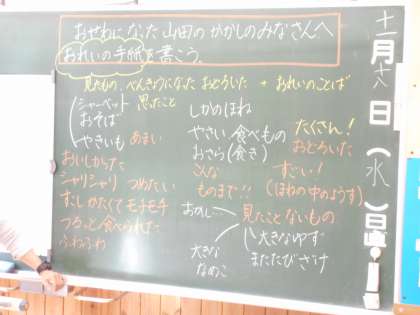 おせわになった山田のかかしのみなさんへ
おれいの手紙を書こう。
見たもの、べんきょうになった おどろいた + おれいのことば
思ったこと
シャーベット
おそば
やきいも あまい
おいしかった
シャリシャリ つめたい
すこしかたくてモチモチ
つるっと食べられた
ふわふわ
しかのほね
やさい 食べもの
おさら(食き)
こんな
ものまで!!
たくさん!
おどろいた
すごい!
(ほねの中のようす)
おかし…
見たことないもの
大きなゆず
またたびざけ
大きな
なめこ
十一月十八日(水)